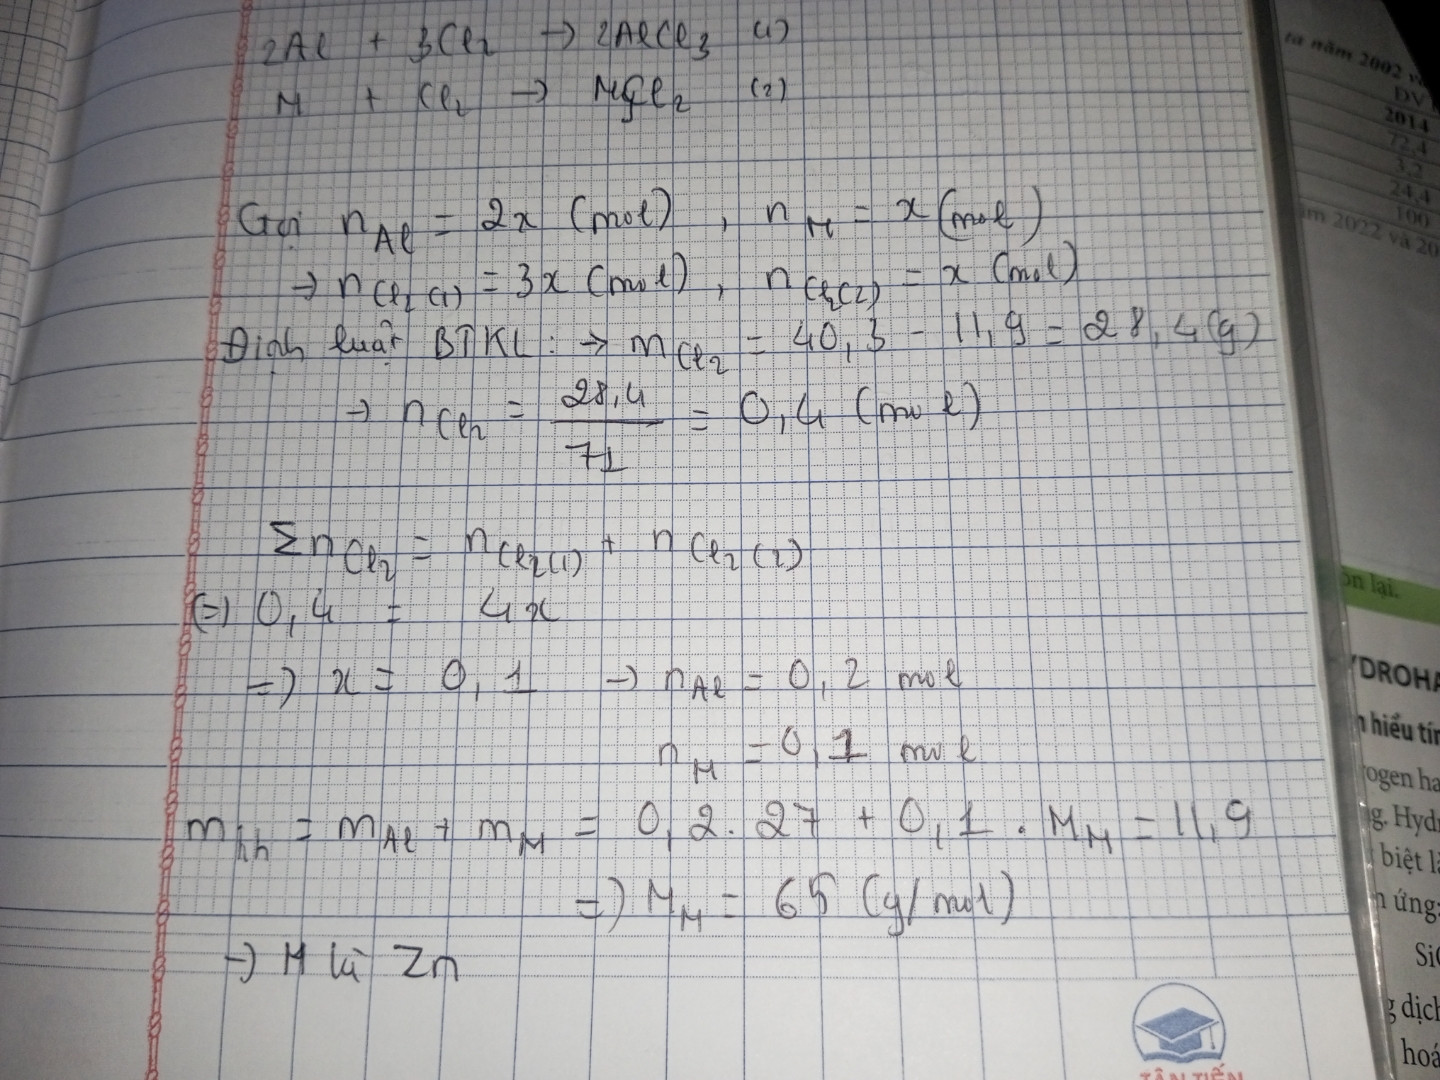 2Al + 3Cl2 → 2AlCl3 (1)
M + Cl2 → MgCl2 (2)
Gọi nAl = 2x (mol), nM = x (mol)
→ nCl2(1) = 3x (mol), nCl2(2) = x (mol)
Định luật BTKL: → mCl2 = 40,3 - 11,9 = 28,4(g)
→ nCl2 = 28,4/71 = 0,4 (mol)
ΣnCl2 = nCl2(1) + nCl2(2)
(=) 0,4 = 4x
=) x = 0,1 → nAl = 0,2 mol
nM = 0,1 mol
mhh = mAl + mM = 0,2.27 + 0,1.MM = 11,9
=) MM = 65 (g/mol)
→ M là Zn
TÂN TIẾN
ra năm 2002 v
ĐV
2014
72,4
3,2
24,4
100
ăm 2022 và 20
òn lại.
YDROHA
hiểu tín
rogen ha
g. Hydr
biệt là
n ứng:
SiO
g dịch
hoá